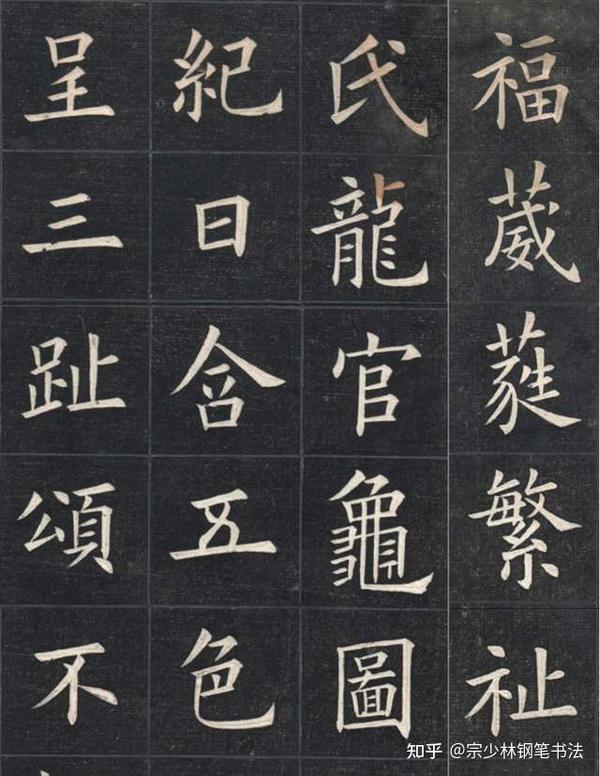 福葳蕤繁祉
氏龍官龜圖
紀日含五色
呈三趾頌不
知乎 @宗少林钢笔书法